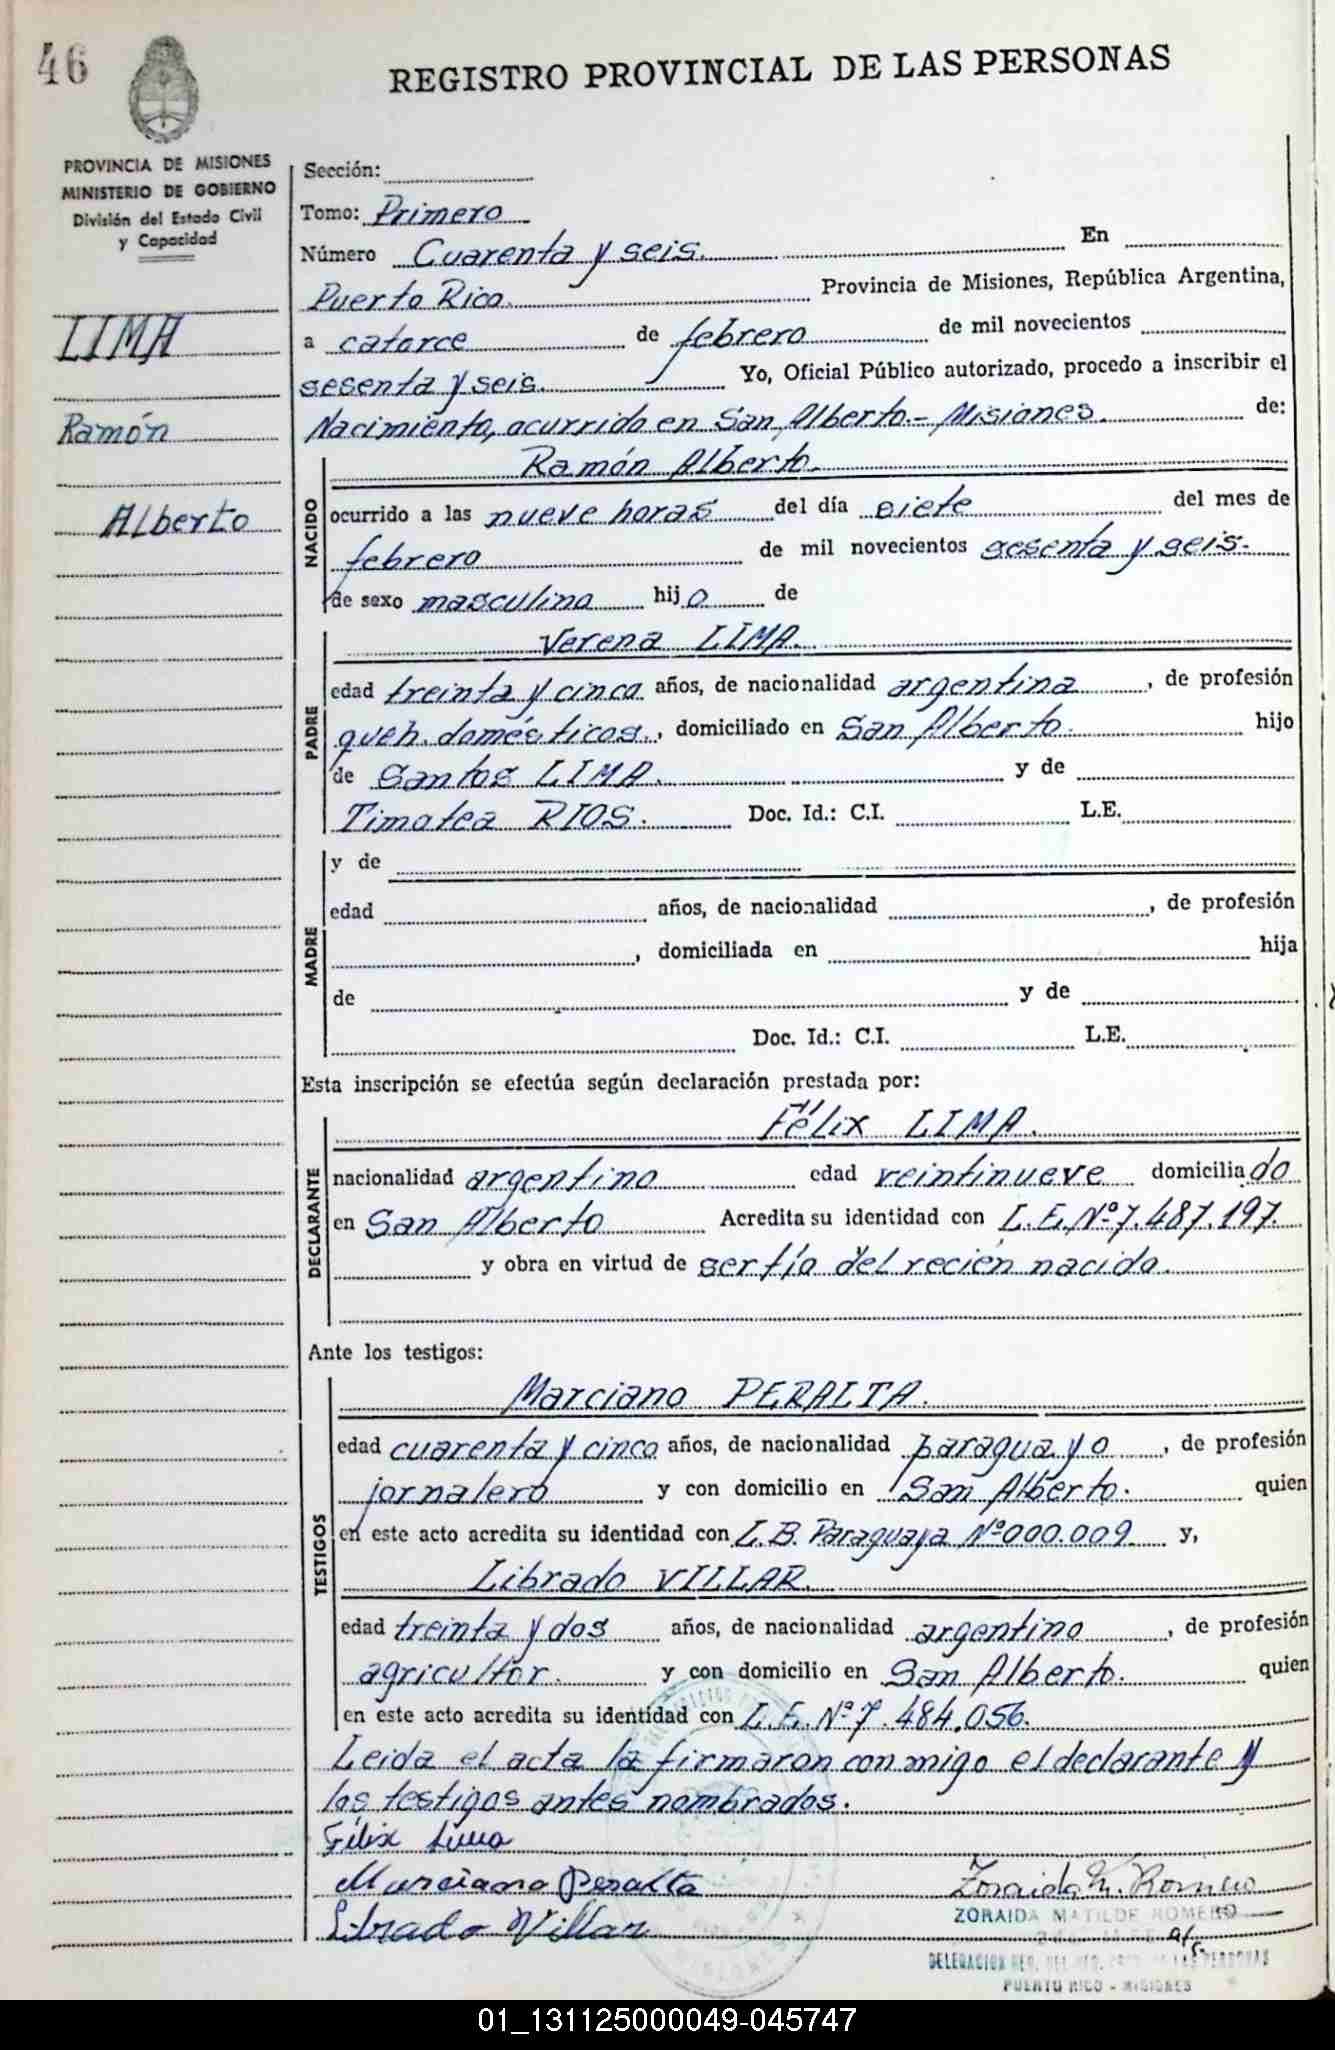 46
REGISTRO PROVINCIAL DE LAS PERSONAS
PROVINCIA DE MISIONES
MINISTERIO DE GOBIERNO
División del Estado Civil
y Capacidad
LIMA
Ramón
Alberto
Sección:
Tomo: Primero
Número Cuarenta y seis. En
Puerto Rico. Provincia de Misiones, República Argentina,
a catorce de febrero de mil novecientos
sesenta y seis. Yo, Oficial Público autorizado, procedo a inscribir el
Nacimiento, ocurrido en San Alberto.- Misiones. de:
NACIDO
Ramón Alberto.
ocurrido a las nueve horas del día siete del mes de
febrero de mil novecientos sesenta y seis.
de sexo masculino hijo de
PADRE
Verena LIMA.
edad treinta y cinco años, de nacionalidad argentina, de profesión
queh. domésticos., domiciliado en San Alberto. hijo
de Santos LIMA. y de
Timotea RIOS. Doc. Id.: C.I. L.E.
MADRE
y de
edad años, de nacionalidad , de profesión
, domiciliada en hija
de y de
Doc. Id.: C.I. L.E.
Esta inscripción se efectúa según declaración prestada por:
DECLARANTE
Félix LIMA.
nacionalidad argentino edad veintinueve domiciliado
en San Alberto Acredita su identidad con L.E.Nº7.487.197.
y obra en virtud de ser tío del recién nacido.
Ante los testigos:
TESTIGOS
Marciano PERALTA.
edad cuarenta y cinco años, de nacionalidad paraguayo, de profesión
jornalero y con domicilio en San Alberto. quien
en este acto acredita su identidad con L.B. Paraguaya Nº000.009 y,
Librado VILLAR.
edad treinta y dos años, de nacionalidad argentino, de profesión
agricultor. y con domicilio en San Alberto. quien
en este acto acredita su identidad con L.E. Nº7.484.056.
Leida el acta la firmaron conmigo el declarante y
los testigos antes nombrados.
Félix Lima
Marciano Peralta
Librado Villar
Zoraida M. Romero
ZORAIDA MATILDE ROMERO
DELEGACION REG. DEL REG. PROV. DE LAS PERSONAS
PUERTO RICO - MISIONES
01_131125000049-045747